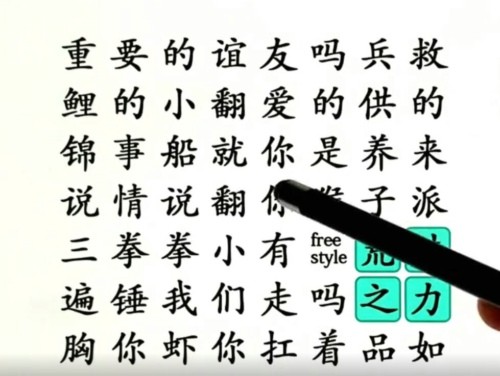 重要的谊友吗兵救
鲤的小翻爱的供的
锦事船就你是养来
说情说翻你子派
三拳拳小有free style荒
遍锤我们走吗之力
胸你虾你扛着品如